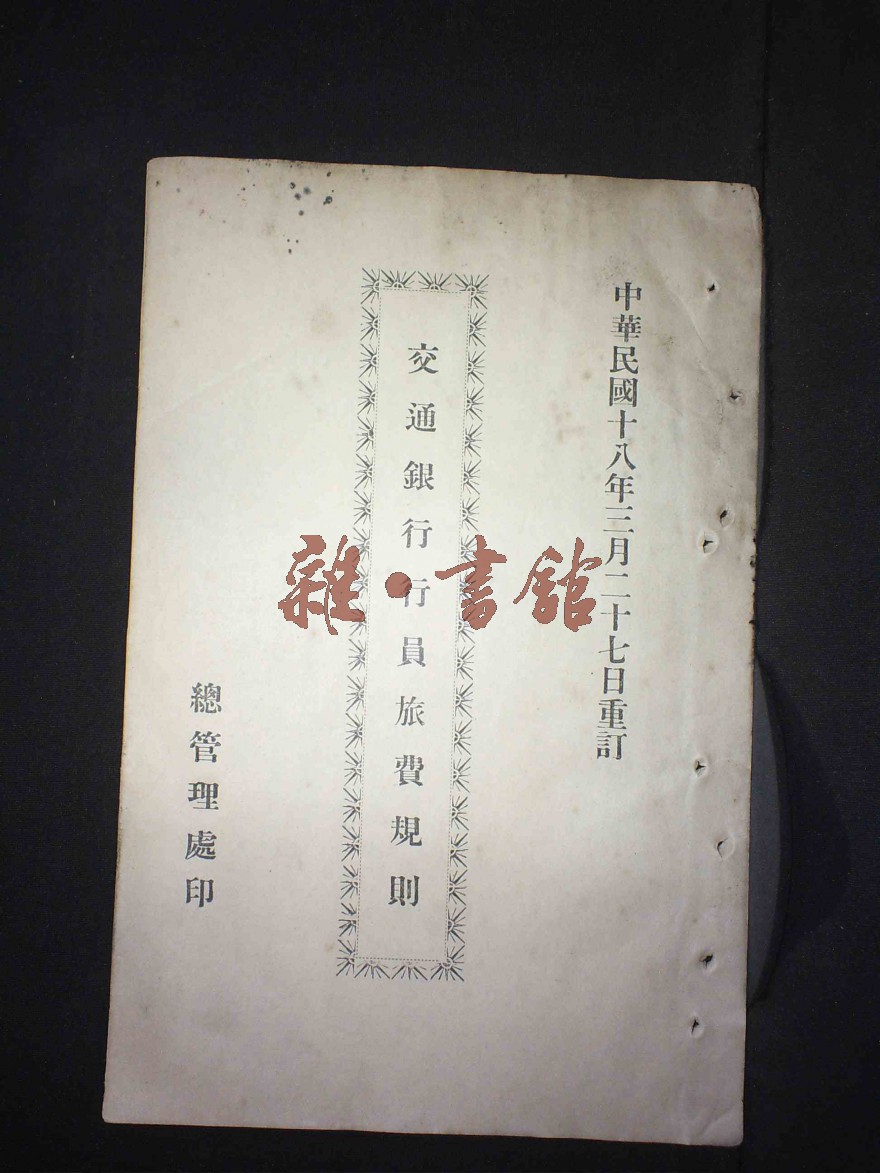 中華民國十八年三月二十七日重訂
交通銀行行員旅費規則
總管理處印
雜·書館